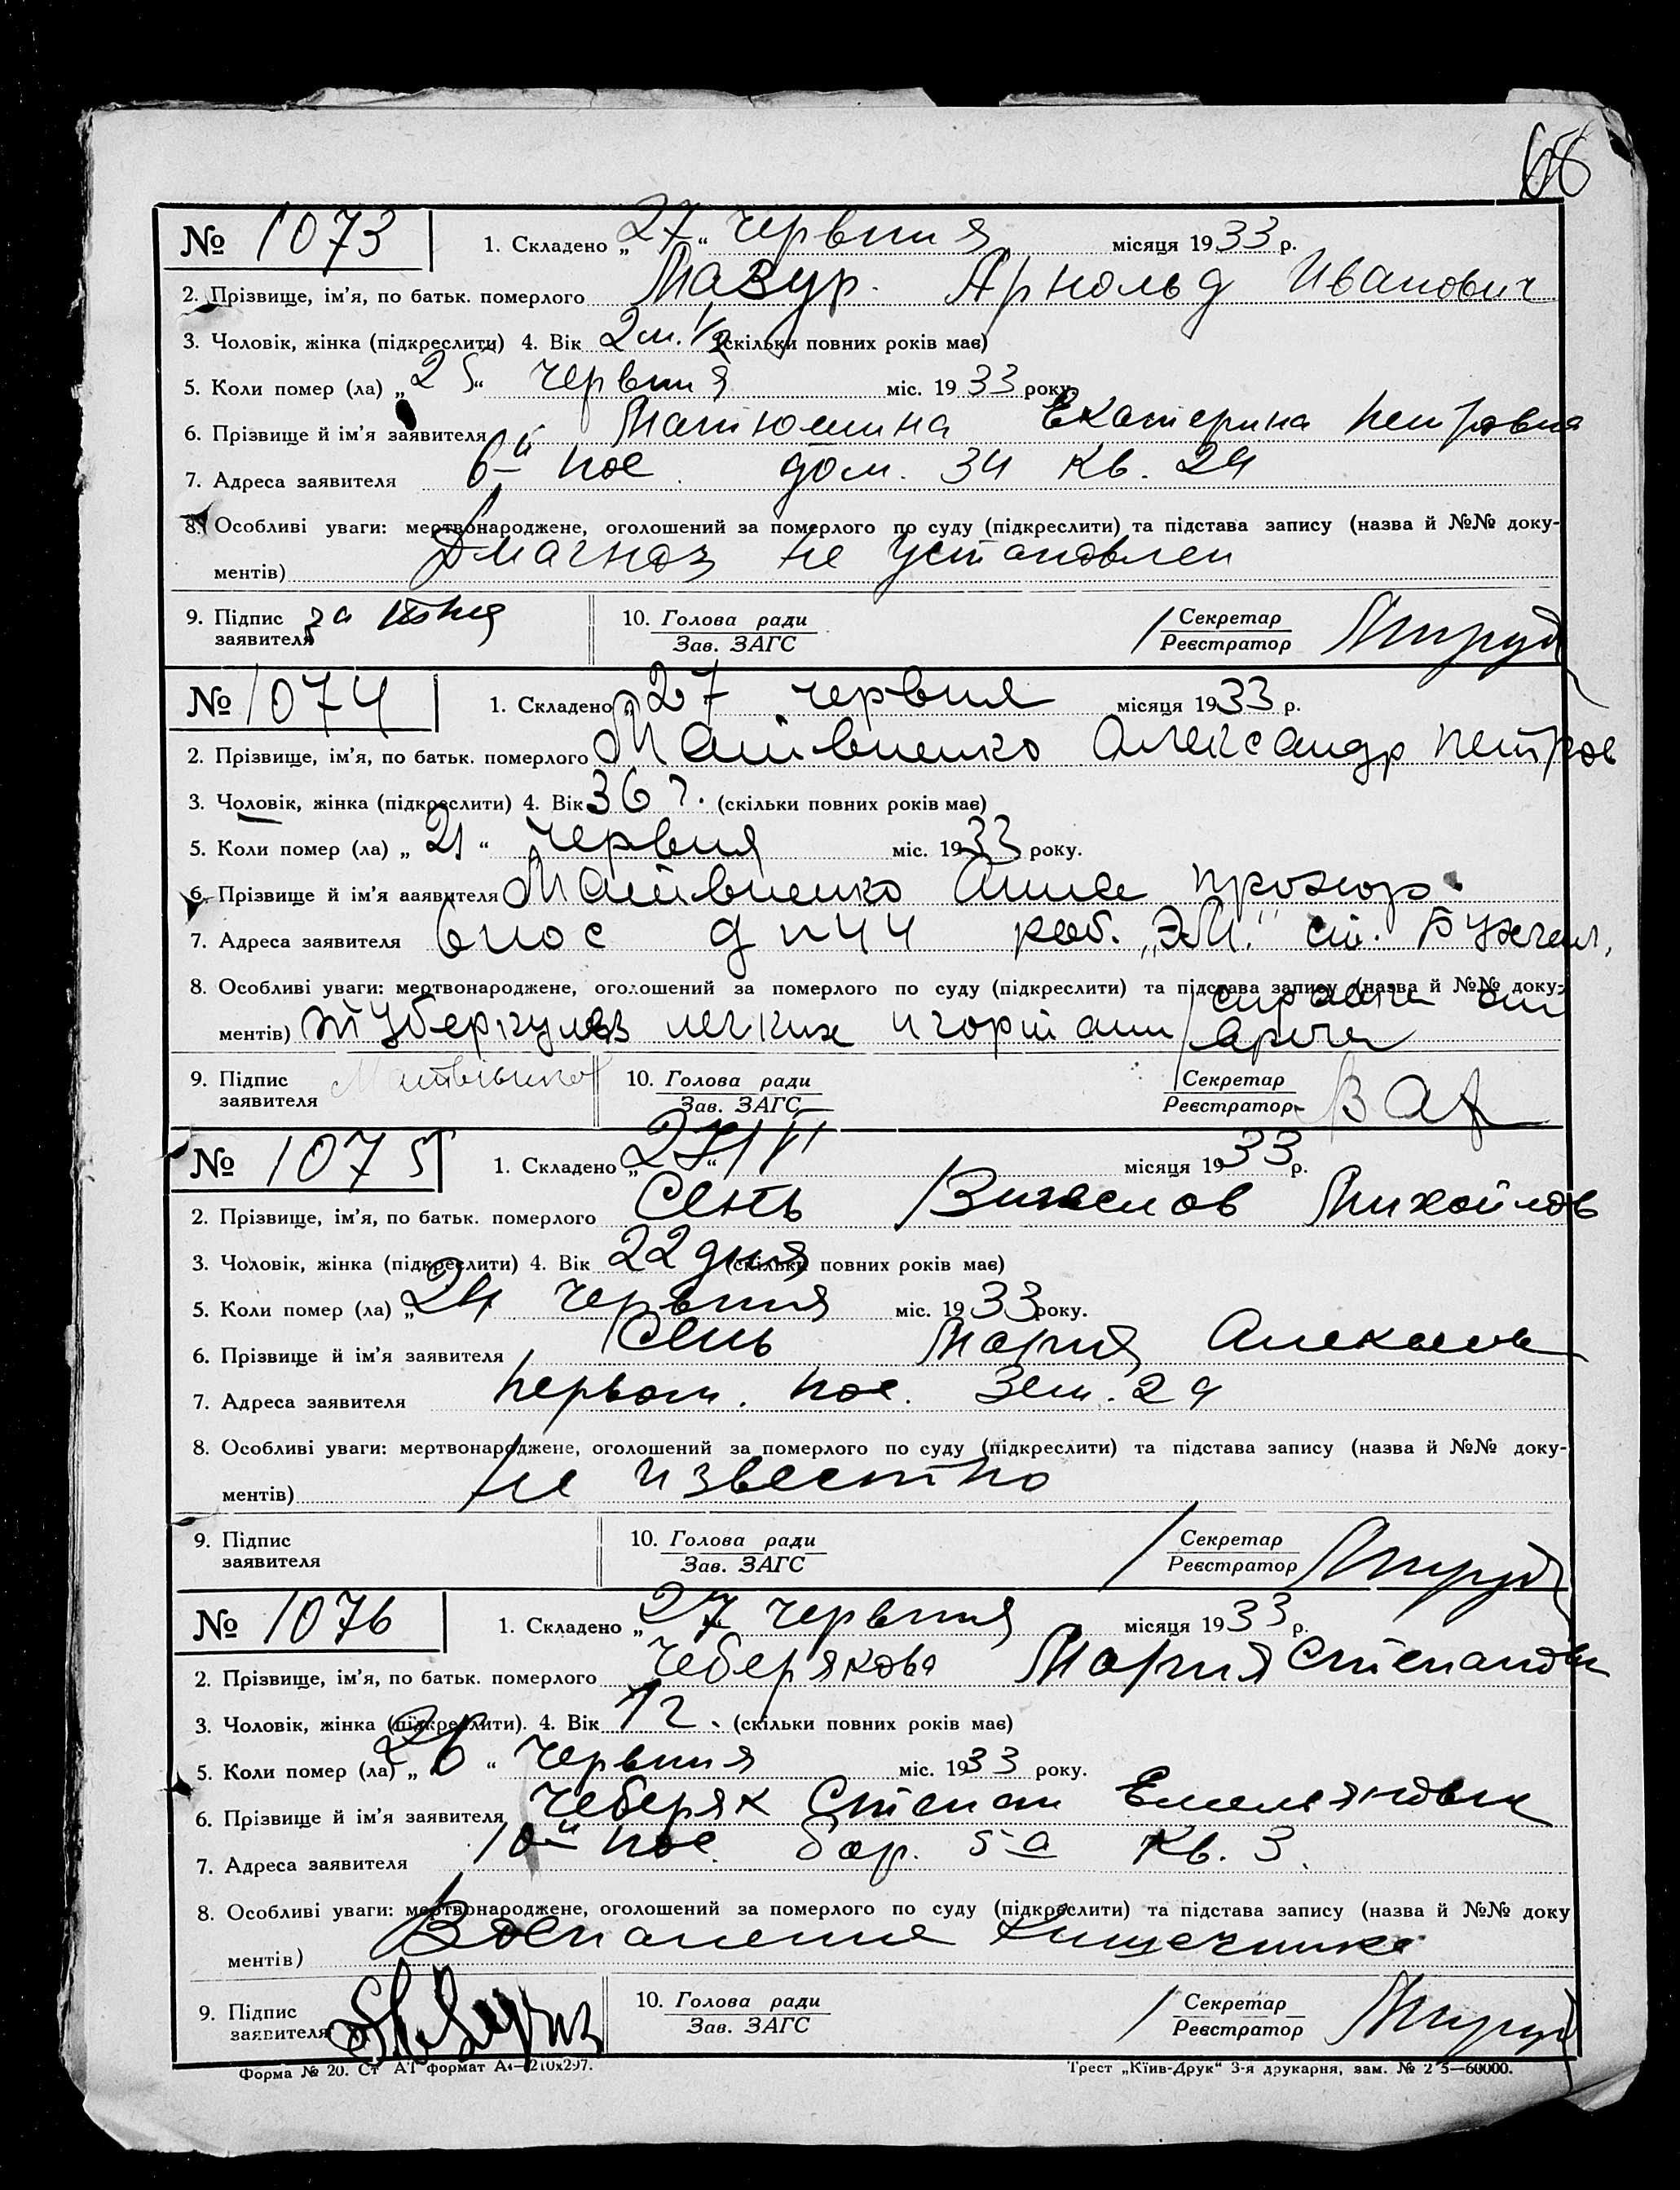 68
№ 1073 1. Складено „27“ червння місяця 1933 р.
2. Прізвище, ім'я, по батьк. померлого Мазур. Арнольд Иванович
3. Чоловік, жінка (підкреслити) 4. Вік 2 м. 1/2 (скільки повних років має)
5. Коли помер (ла) „25“ червния міс. 1933 року.
6. Прізвище й ім'я заявителя Матюшина Екатерина Петровна
7. Адреса заявителя 6й пос. дом. 34 кв. 24
8. Особливі уваги: мертвонароджене, оголошений за померлого по суду (підкреслити) та підстава запису (назва й №№ доку-
ментів) Диагноз не установлен
9. Підпис за
заявителя
10. Голова ради
Зав. ЗАГС
Секретар
Реєстратор
№ 1074 1. Складено „27 червня місяця 1933 р.
2. Прізвище, ім'я, по батьк. померлого Матвиенко Александр Петров
3. Чоловік, жінка (підкреслити) 4. Вік 36 г. (скільки повних років має)
5. Коли помер (ла) „21“ червня міс. 1933 року.
6. Прізвище й ім'я заявителя Матвиенко Анна Прохор.
7. Адреса заявителя 6 пос д п 44 раб. „ЭМ.“ ст.
8. Особливі уваги: мертвонароджене, оголошений за померлого по суду (підкреслити) та підстава запису (назва й №№ доку-
ментів) туберкулез легких и гортани / справка от
врача
9. Підпис
заявителя
10. Голова ради
Зав. ЗАГС
Секретар
Реєстратор
№ 1075 1. Складено „27“/VI місяця 1933 р.
2. Прізвище, ім'я, по батьк. померлого Сень Михайлов
3. Чоловік, жінка (підкреслити) 4. Вік 22 дня (скільки повних років має)
5. Коли помер (ла) „24 червния міс. 1933 року.
6. Прізвище й ім'я заявителя Сень Мария
7. Адреса заявителя Первом. пос. Зем. 29
8. Особливі уваги: мертвонароджене, оголошений за померлого по суду (підкреслити) та підстава запису (назва й №№ доку-
ментів) не известно
9. Підпис
заявителя
10. Голова ради
Зав. ЗАГС
Секретар
Реєстратор
№ 1076 1. Складено „27“ червния місяця 1933 р.
2. Прізвище, ім'я, по батьк. померлого Чеберякова Мария Степановн
3. Чоловік, жінка (підкреслити). 4. Вік 1 г. (скільки повних років має)
5. Коли помер (ла) „26“ червния міс. 1933 року.
6. Прізвище й ім'я заявителя Чеберяк Степан Емельянович
7. Адреса заявителя 10й пос. бар. 5а кв. 3.
8. Особливі уваги: мертвонароджене, оголошений за померлого по суду (підкреслити) та підстава запису (назва й №№ доку
ментів) Воспаление кишечника
9. Підпис
заявителя
10. Голова ради
Зав. ЗАГС
Секретар
Реєстратор
Форма № 20. Ст АТ формат А4—210х297. Трест „Київ-Друк“ 3-я друкарня, зам. № 2 5—60000.